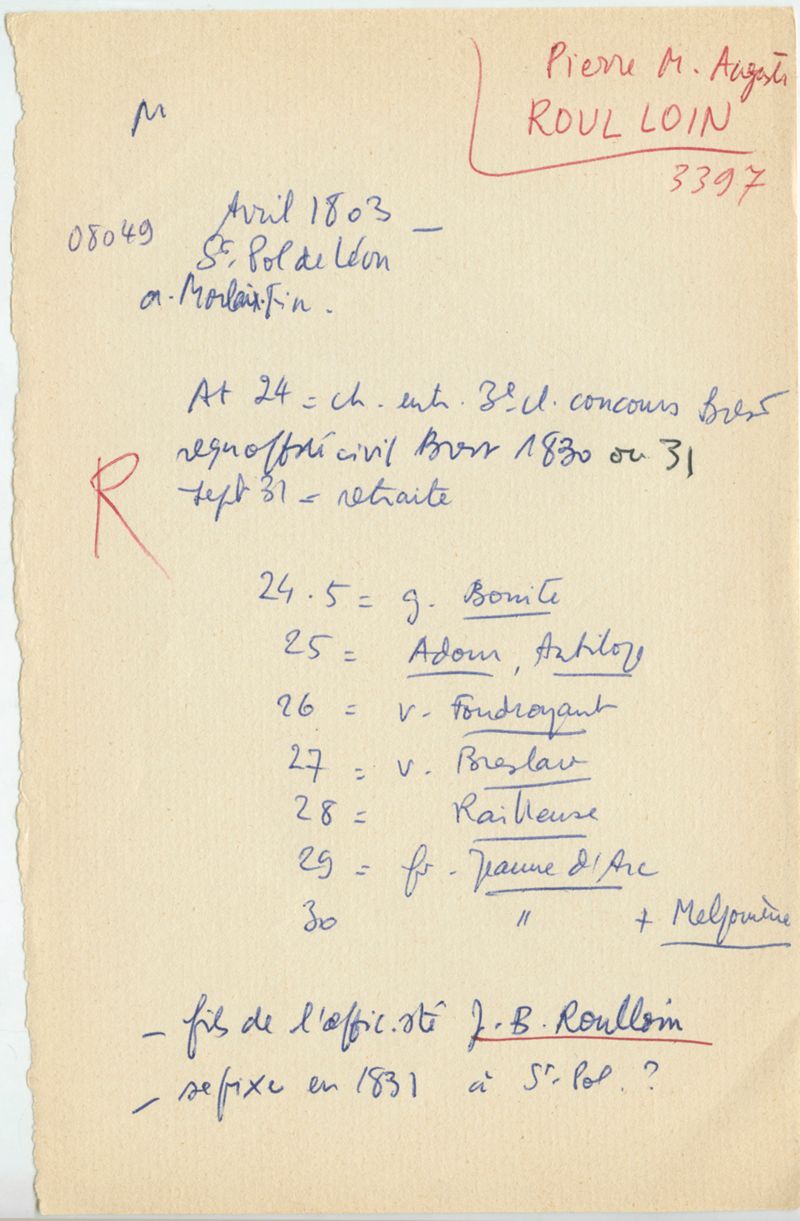 Pierre M. Auguste
ROULLOIN
3397
M
08049
Avril 1803 –
St. Pol de Léon
a. Morlaix. Fin.
At 24 = ch. entr. 3e cl. concours Brest
reçu off sté civil Brest 1830 ou 31
R
Sept 31 = retraite
24.5 = g. Bonite
25 = Adour, Antilope
26 = v. Foudroyant
27 = v. Breslaw
28 = Railleuse
29 = fr. Jeanne d'Arc
30 " + Melpomène
– fils de l'offic. sté J.B. Roulloin
– se fixe en 1831 à St. Pol. ?